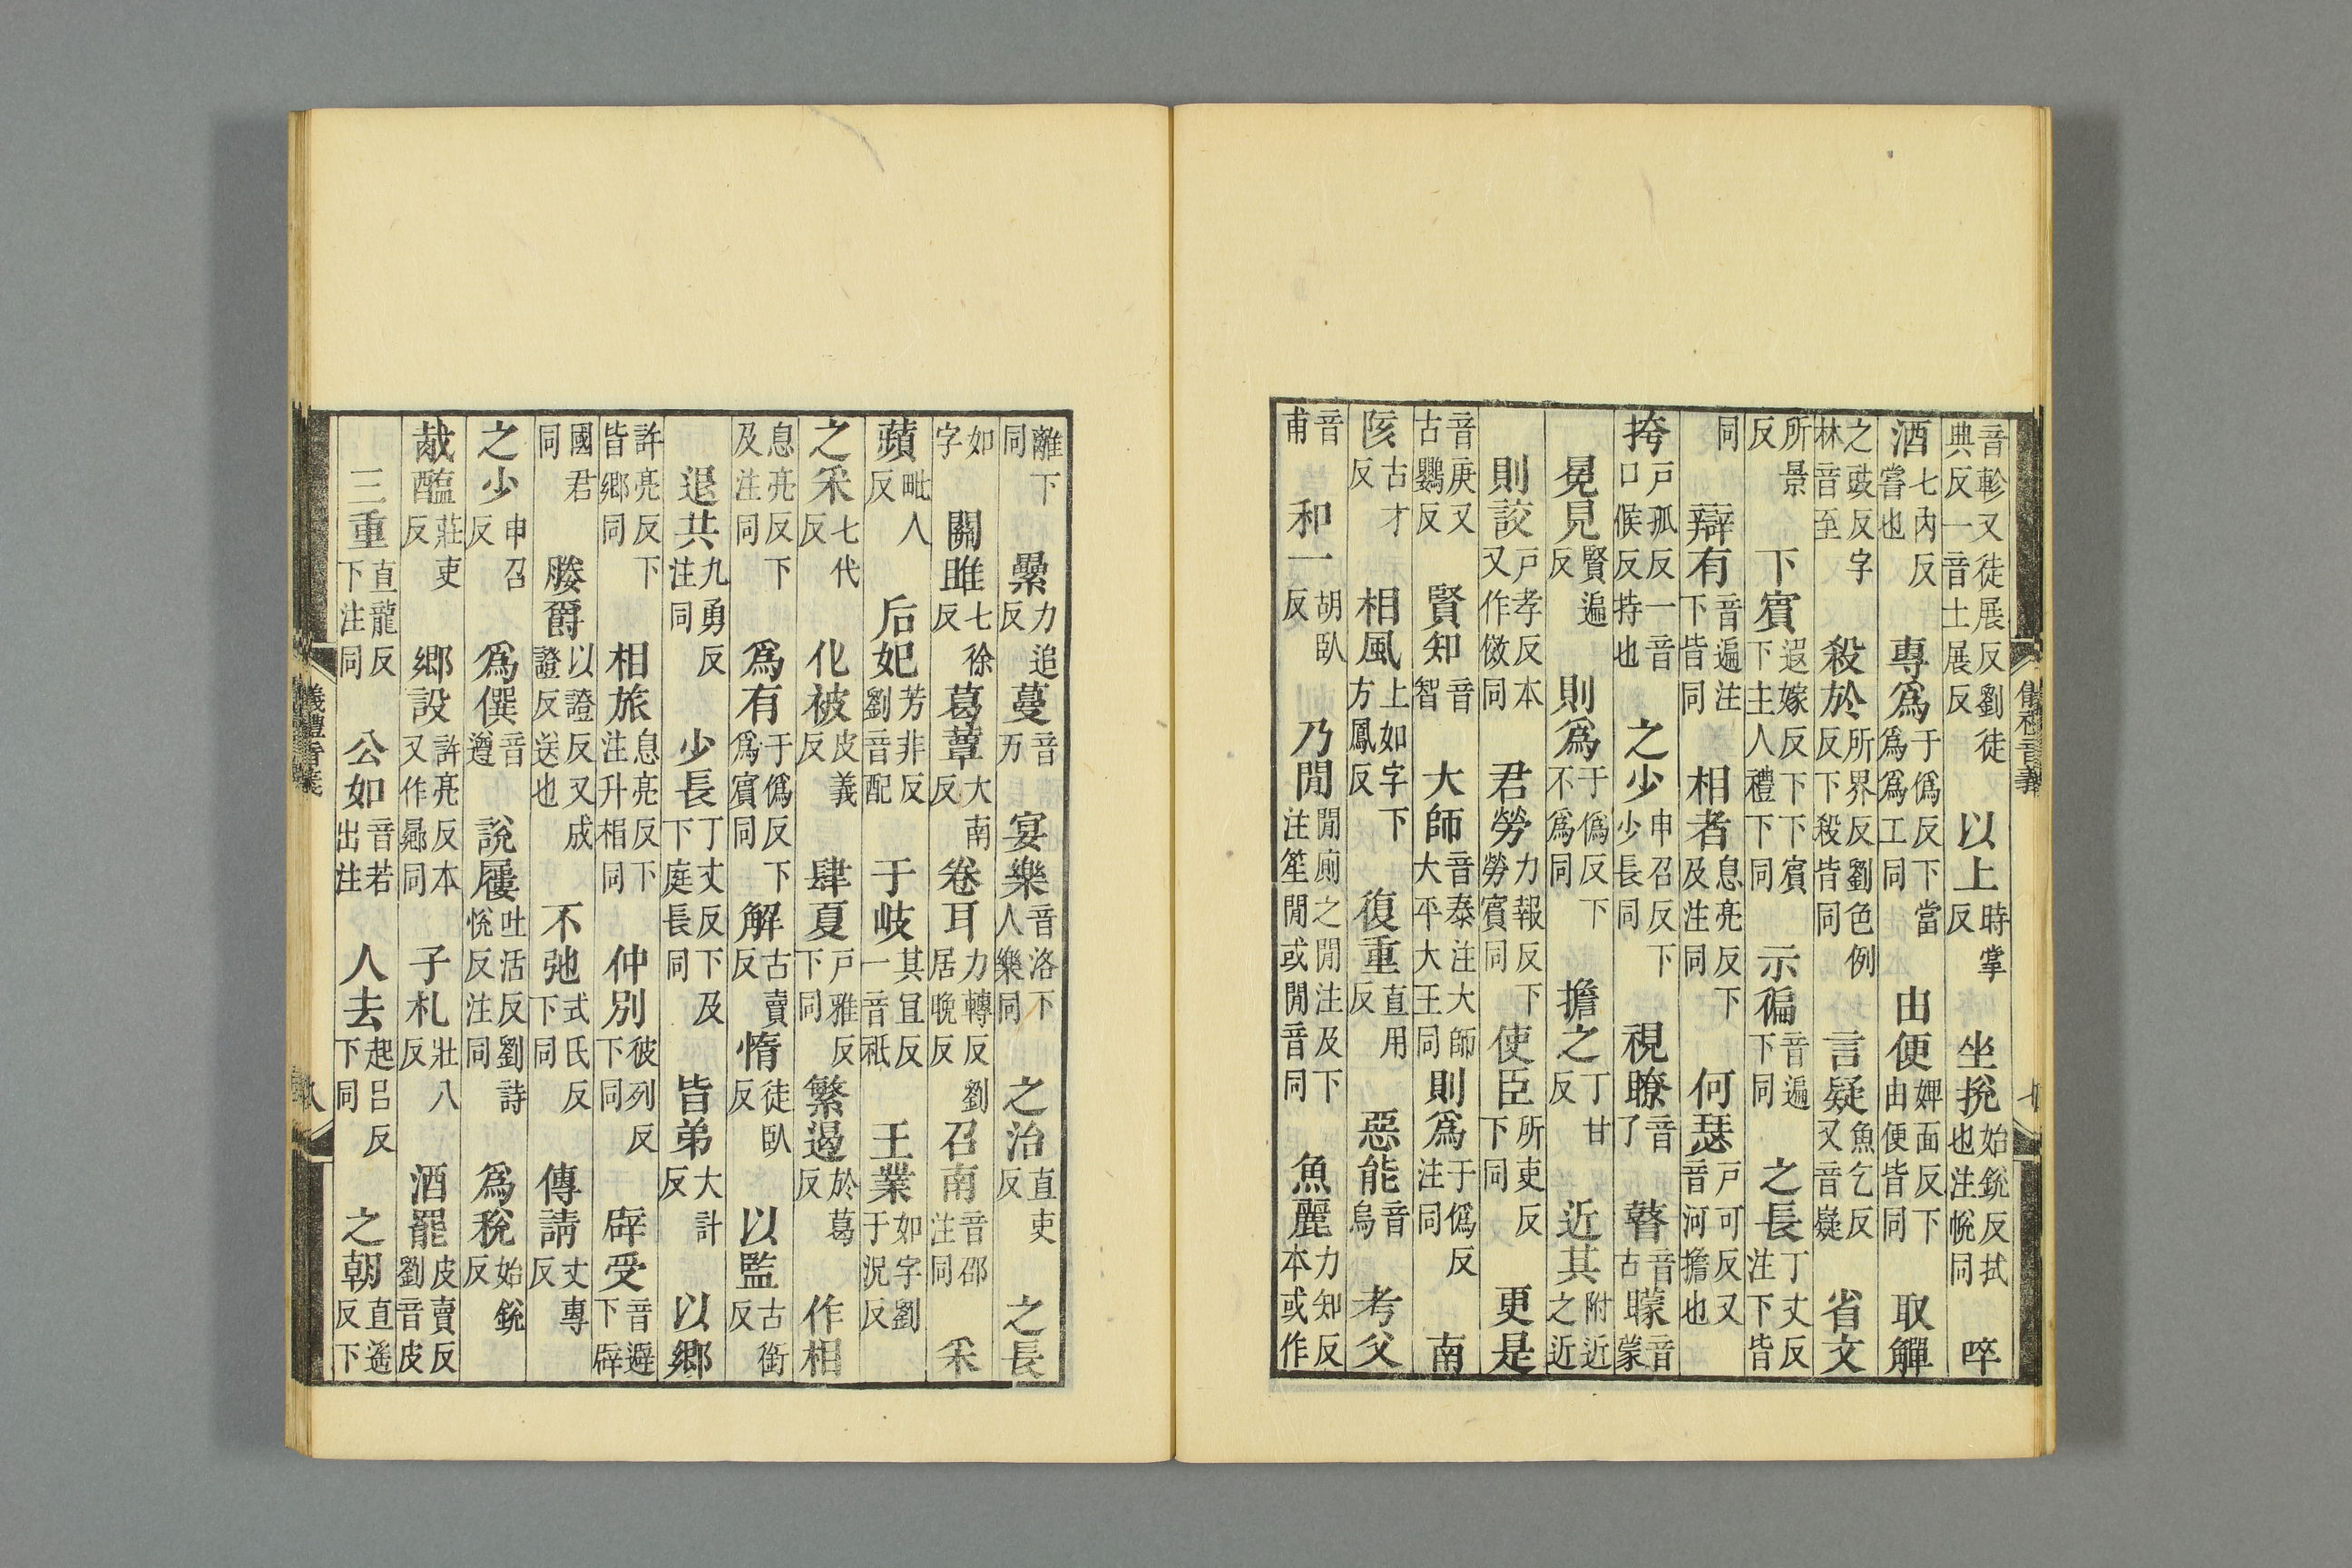 音軫又徒展反劉徒典反一音土展反 以上時掌反 坐挩始銳反拭也注帨同 啐
酒七內反嘗也 專為于偽反下當為為工同 由便婢面反下由便皆同 取觶
之豉反字林音至 殺於所界反劉色例反下殺皆同 言疑魚乞反又音嶷 省文
所景反 下賓遐嫁反下下賓下主人禮下同 示徧音遍下同 之長丁丈反注下皆
同 辯有音遍注下皆同 相者息亮反下及注同 何瑟戶可反又音河擔也
挎戶孤反一音口候反持也 之少申召反下少長同 視瞭音了 瞽音古 矇音蒙
冕見賢遍反 則為于偽反下不為同 擔之丁甘反 近其附近之近
則詨戶孝反本又作傚同 君勞力報反下勞賓同 使臣所吏反下同 更是
音庚又古鸚反 賢知音智 大師音泰注大師大平大王同 則為于偽反注同 南
陔古才反 相風上如字下方鳳反 復重直用反 惡能音烏 考父
音甫 和一胡臥反 乃閒閒廁之閒注及下注笙閒或閒音同 魚麗力知反本或作
離下同 纍力追反 蔓音万 宴樂音洛下人樂同 之治直吏反 之長
如字 關雎七徐反 葛蕈大南反 卷耳力轉反劉居晚反 召南音邵注同 采
蘋毗人反 后妃芳非反劉音配 于岐其宜反一音祇 王業如字劉于況反
之采七代反 化被皮義反 肆夏戶雅反下同 繁遏於葛反 作相
息亮反下及注同 為有于偽反下為賓同 解古賣反 惰徒臥反 以監古銜反
退共九勇反注同 少長丁丈反下及下庭長同 皆弟大計反 以鄉
許亮反下皆鄉同 相旅息亮反下注升相同 仲別彼列反下同 辟受音避下辟
國君同 媵爵以證反又成證反送也 不弛式氏反下同 傳請丈專反
之少申召反 為僎音遵 說屨吐活反劉詩悅反注同 為稅始銳反
胾醢莊吏反 鄉設許亮反本又作曏同 子札壯八反 酒罷皮賣反劉音皮
三重直龍反下注同 公如音若出注 人去起呂反下同 之朝直遙反下
儀禮音義
七
儀禮音義
八